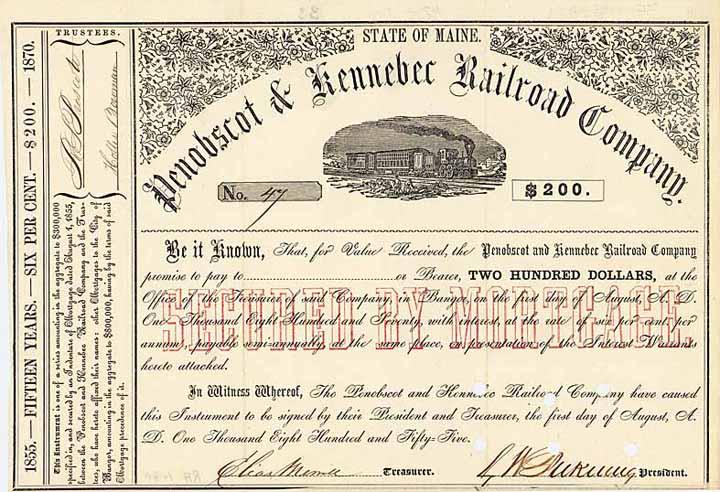 STATE OF MAINE.
Penobscot & Kennebec Railroad Company.
No. 47
$200.
Be it Known, That, for Value Received, the Penobscot and Kennebec Railroad Company
promise to pay to........................or Bearer, TWO HUNDRED DOLLARS, at the
Office of the Treasurer of said Company, in Bangor, on the first day of August, A. D.
One Thousand Eight Hundred and Seventy, with interest, at the rate of six per cent. per
annum, payable semi-annually, at the same place, on presentation of the Interest Warrants
hereto attached.
SECURED BY MORTGAGE
In Witness Whereof, The Penobscot and Kennebec Railroad Company have caused
this Instrument to be signed by their President and Treasurer, the first day of August, A.
D. One Thousand Eight Hundred and Fifty-Five.
Elias Merrill Treasurer.
President.
1855.—FIFTEEN YEARS.—SIX PER CENT.—$200.—1870.
TRUSTEES.
This Instrument is one of a series amounting in the aggregate to $300,000
specified in, and secured by an Indenture of Mortgage dated August 1, 1855,
between the Penobscot and Kennebec Railroad Company and the Trus-
tees, who have hereto affixed their names: other Mortgages to the City of
Bangor, amounting in the aggregate to $800,000, having by the terms of said
Mortgage precedence of it.